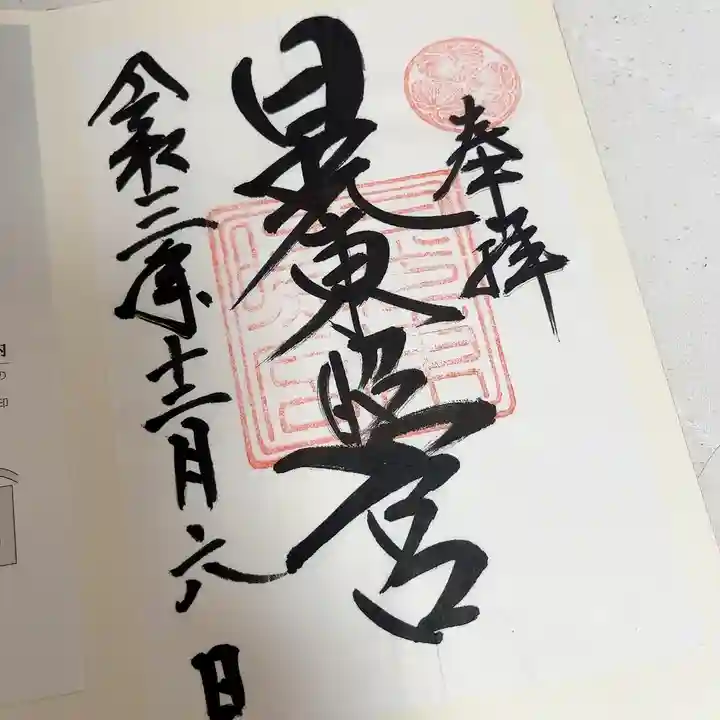 奉拝
日光東照宮
令和二年十二月六日
内
り
印